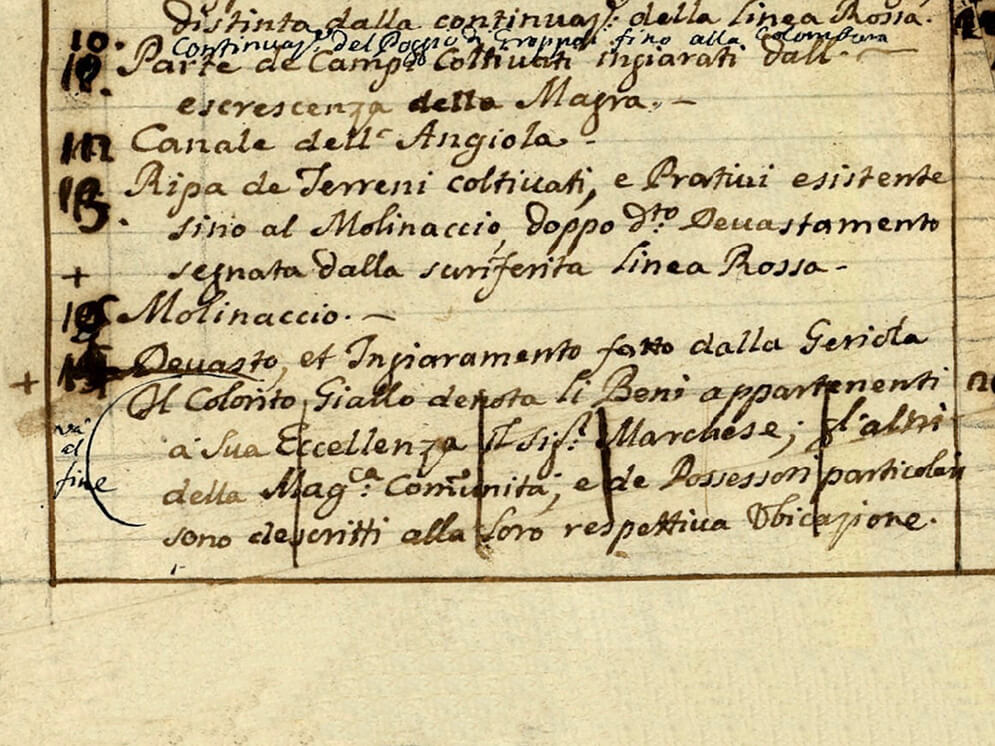 distinta dalla continuaz.e della linea Rossa.
10. Continuaz.e del Poggio di fino alla Colombara
Parte de Campi Coltivati ingiarati dall'
escrescenza della Magra. -
Canale dell' Angiola. -
Ripa de Terreni coltivati, e Prativi esistente
13. sino al Molinaccio, doppo d.to Devastamento
+ segnata dalla surriferita linea Rossa -
Molinaccio. -
+ Devasto, et Ingiaramento fatto dalla Geriola
Il Colorito Giallo denota li Beni appartenenti
va a Sua Eccellenza il Sig.r Marchese; l'altri
al della Mag.ca Comunità, e de Possessori particolari
fine sono descritti alla loro respettiva Ubicazione.